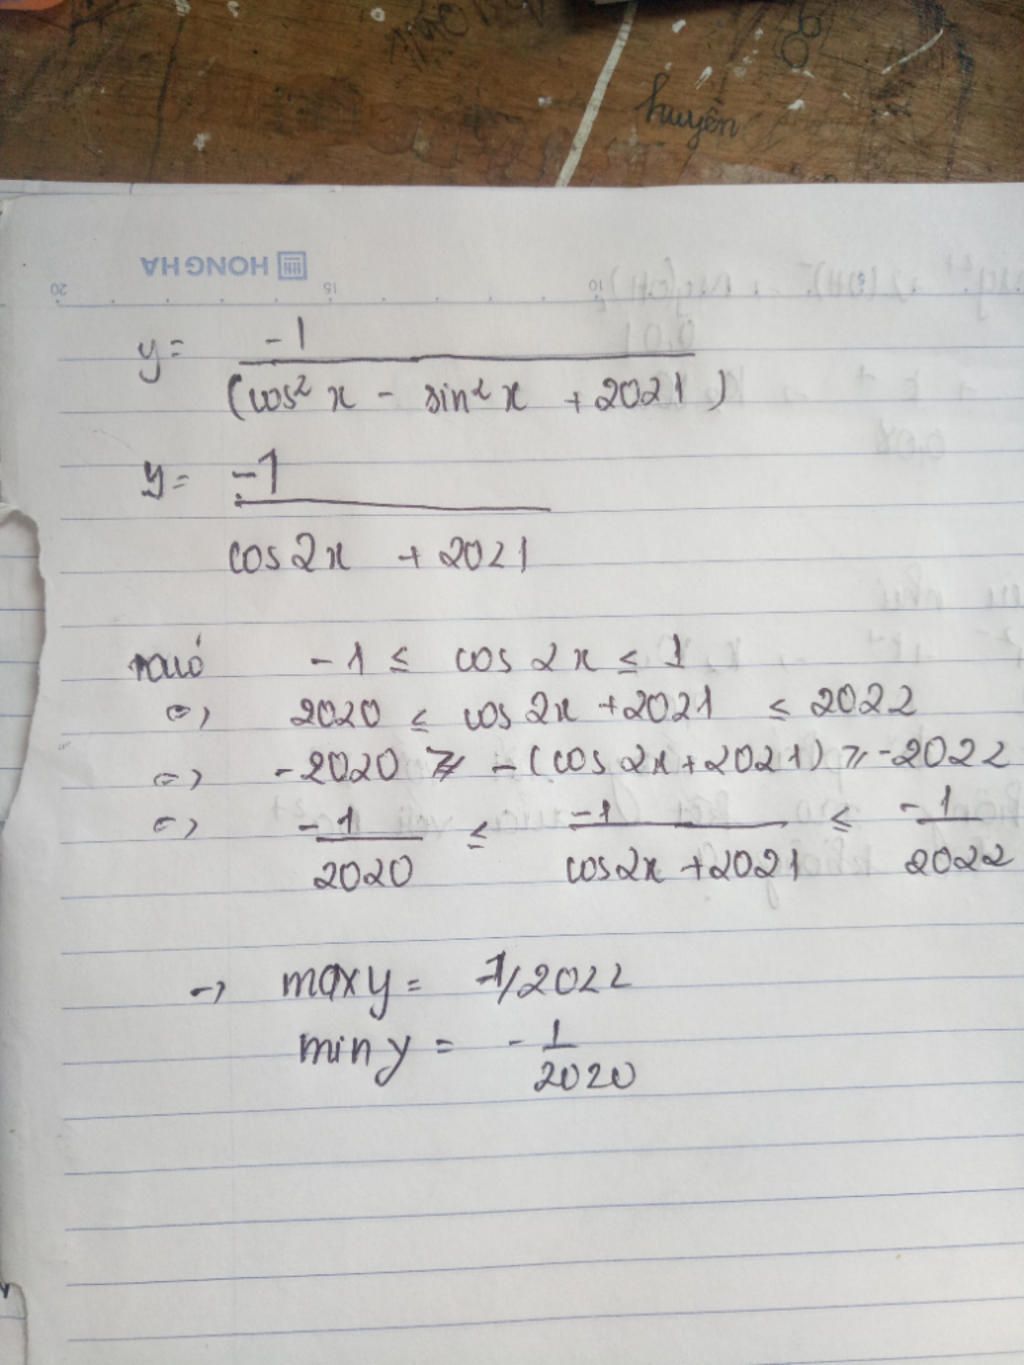 huyên
HONG HA
20 15 10
y = -1 / (cos² x - sin² x + 2021)
y = -1 / cos 2x + 2021
-1 ≤ cos 2x ≤ 1
2020 ≤ cos 2x + 2021 ≤ 2022
-2020 ≥ -(cos 2x + 2021) ≥ -2022
-1/2020 ≤ -1 / cos 2x + 2021 ≤ -1/2022
→ max y = -1/2022
min y = -1/2020